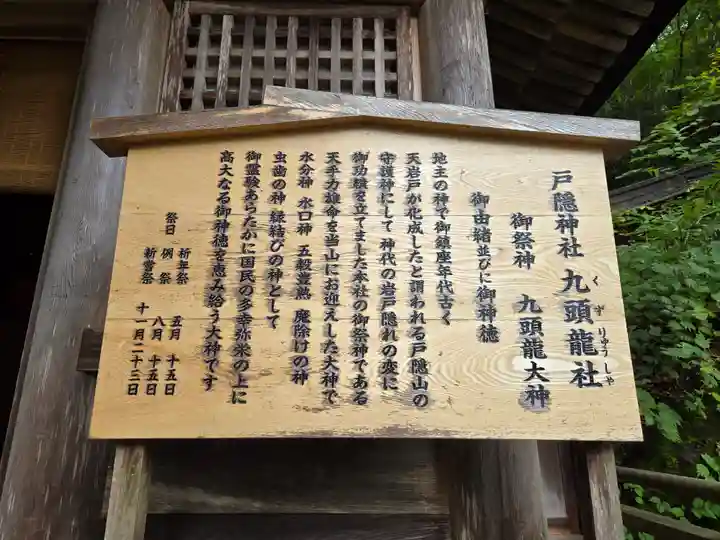 戸隠神社 九頭龍社
くずりゅうしゃ
御祭神 九頭龍大神
御由緒並びに御神徳
地主の神で御鎮座年代古く
天岩戸が化成したと謂われる戸隠山の
守護神にして 神代の岩戸隠れの変に
御功験を立てました本社の御祭神である
天手力雄命を当山にお迎えした大神で
水分神 水口神 五穀豊熟 魔除けの神
虫歯の神 縁結びの神として
御霊験あらたかに国民の多幸弥栄の上に
高大なる御神徳を恵み給う大神です
祭日 祈年祭 五月 十五日
例祭 八月 十五日
新嘗祭 十一月二十三日